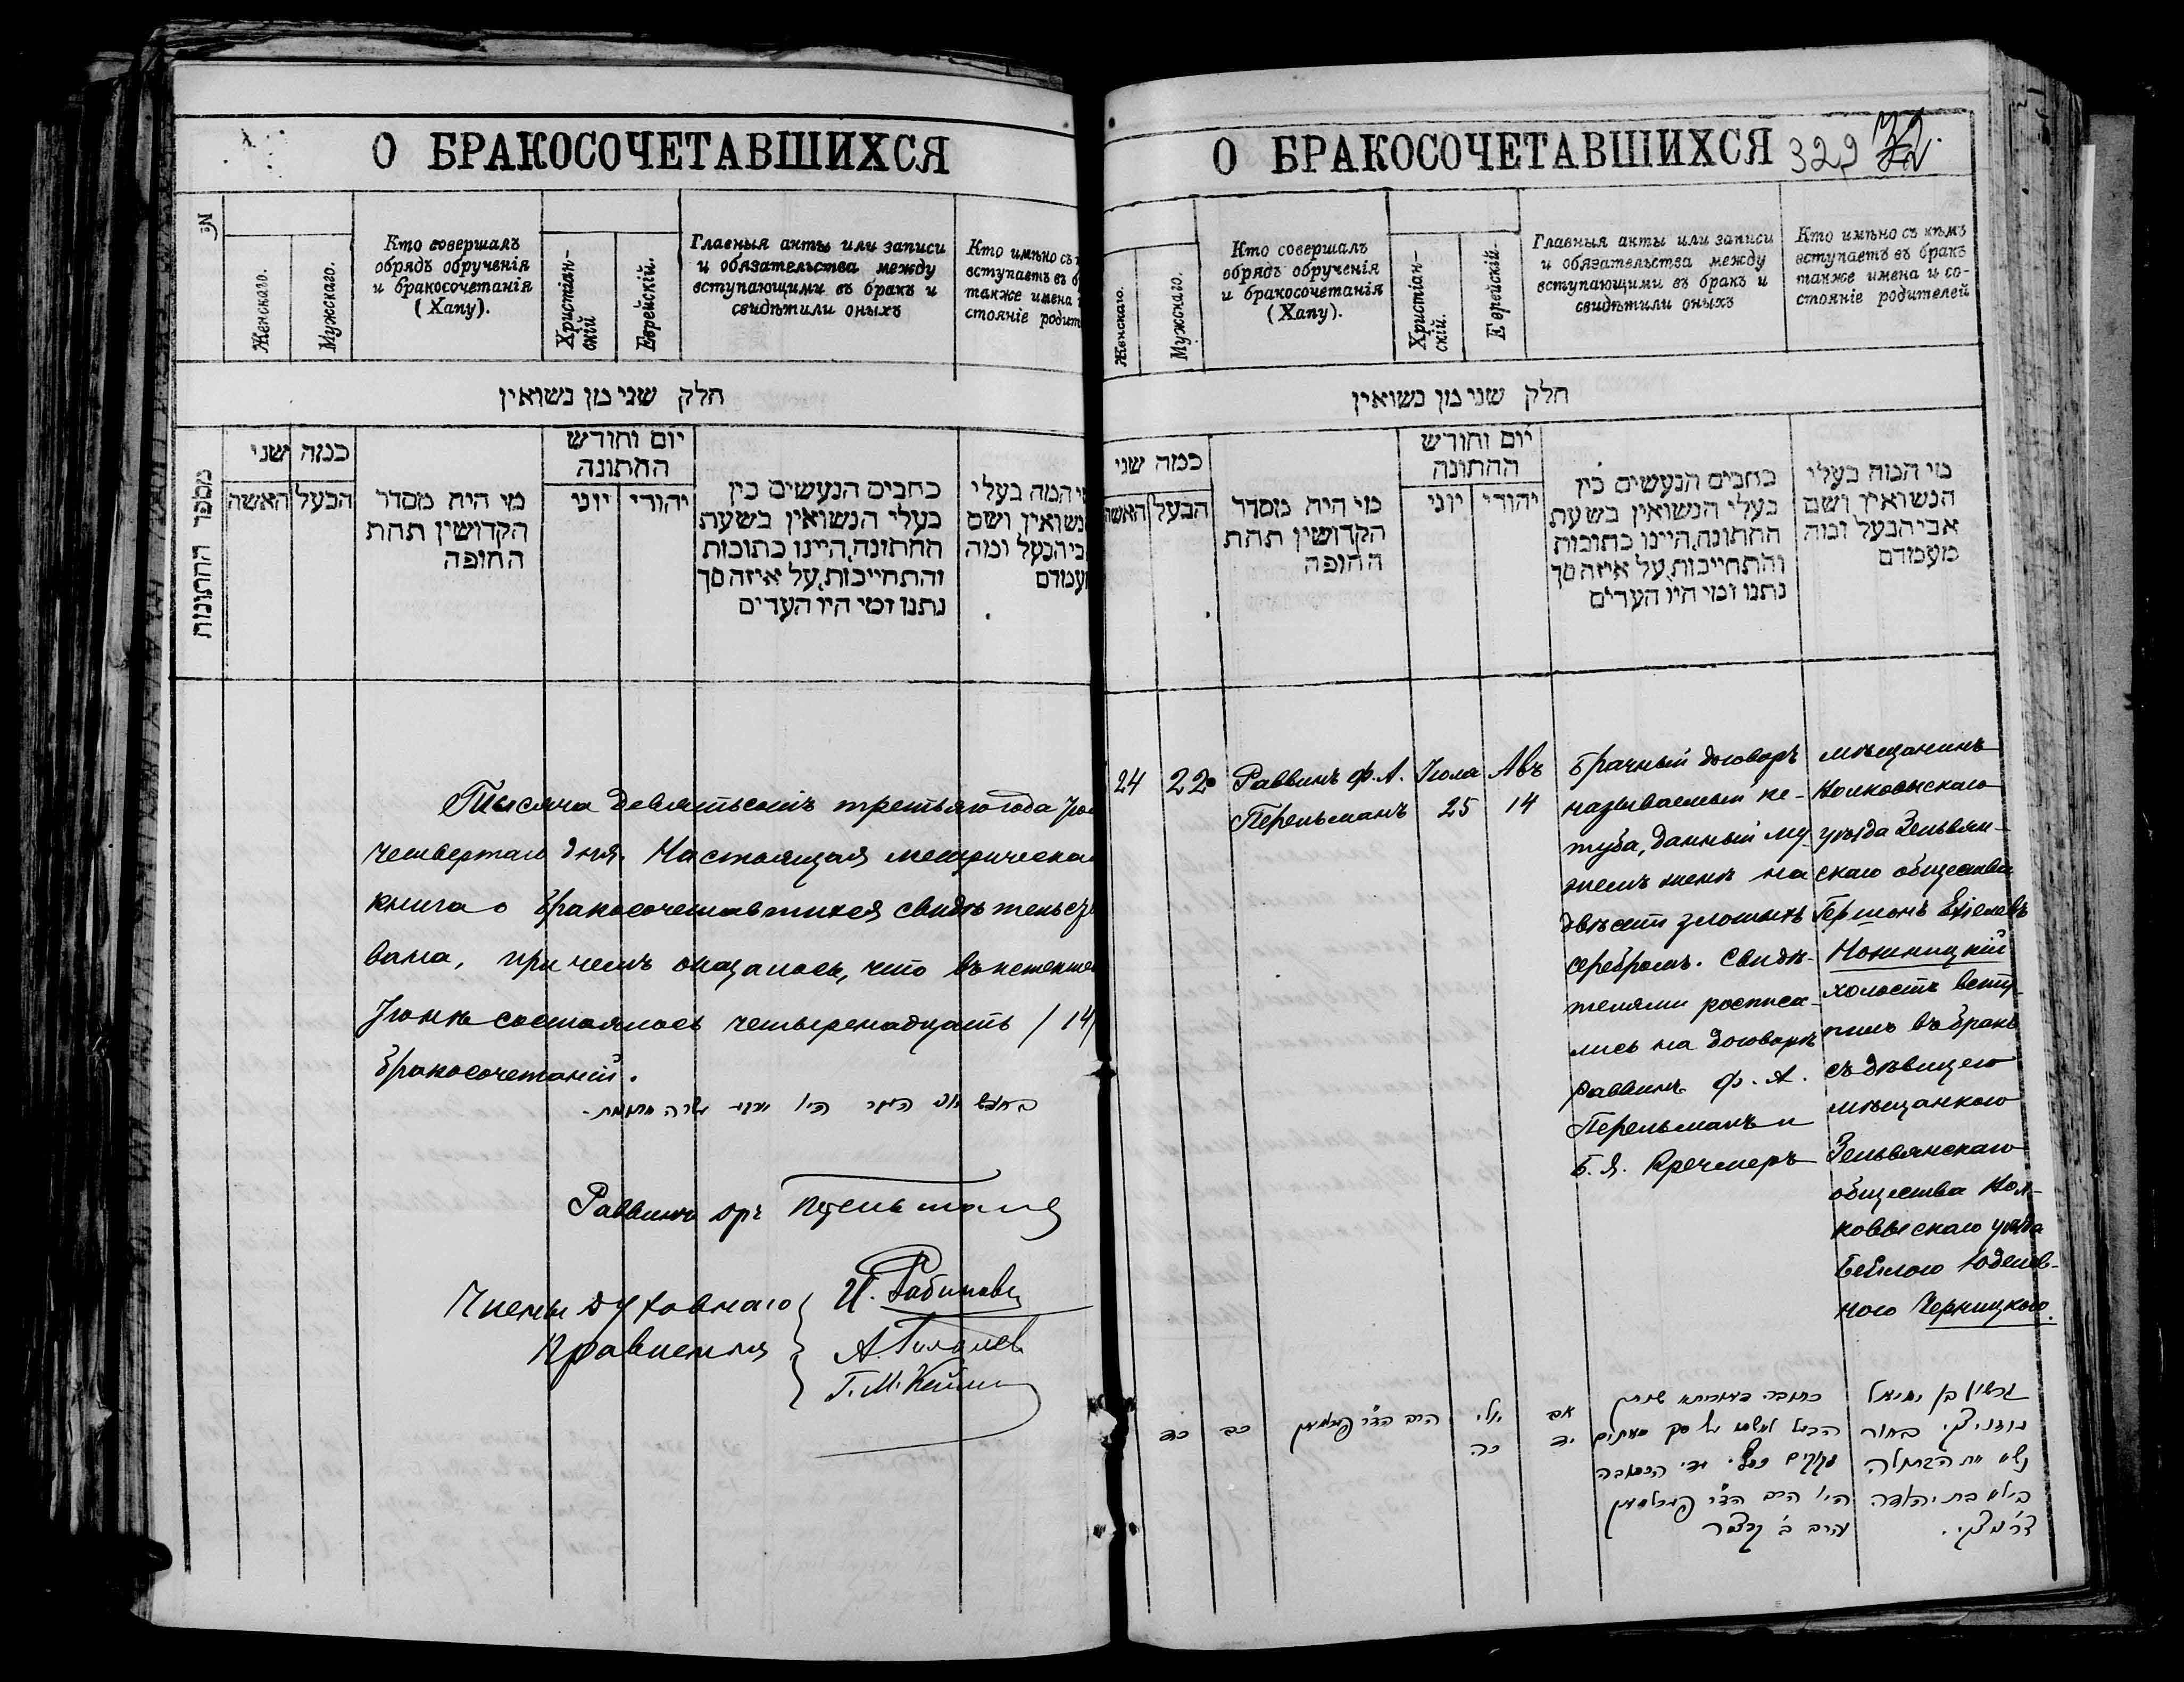 О БРАКОСОЧЕТАВШИХСЯ
№
Женскаго.
Мужскаго.
Кто совершалъ
обрядъ обрученія
и бракосочетанія
(Хапу).
Христіан-
скій
Еврейскій.
Главныя акты или записи
и обязательства между
вступающими въ бракъ и
свидѣтили оныхъ
Кто имѣно съ
вступаетъ въ б
также имена
стояніе родит
חלק שני מן נשואין
מספר החתונות
כמה שני
האשה
הבעל
מי היה מסדר
הקדושין תחת
החופה
יום וחודש
החתונה
יוני
יהודי
כתבים הנעשים בין
בעלי הנשואין בשעת
החתונה,היינו כתובות
והתחייבות,על איזה סך
נתנו ומי היו העדים
י המה בעלי
נשואין ושם
ביהבעל ומה
עמדם
Тысяча девятьсотъ третьяго года Iю
четвертаго дня. Настоящая метрическая
книга о бракосочетавшихся свидѣтельство
вана, при чемъ оказалось, что въ истекше
Iюнѣ состоялось четыренадцать /14/
бракосочетаній.
Раввинъ Ф. Перельманъ
Члены духовнаго
правленія
И. Рабинови
Г. М. Кейли
О БРАКОСОЧЕТАВШИХСЯ 329
Женскаго.
Мужскаго.
Кто совершалъ
обрядъ обрученія
и бракосочетанія
(Хапу).
Христіан-
скій.
Еврейскій.
Главныя акты или записи
и обязательства между
вступающими въ бракъ и
свидѣтили оныхъ
Кто имѣно съ кѣмъ
вступаетъ въ бракъ
также имена и со-
стояніе родителей
חלק שני מן נשואין
כמה שני
האשה
הבעל
מי היה מסדר
הקדושין תחת
החופה
יום וחודש
החתונה
יוני
יהודי
כתבים הנעשים בין
בעלי הנשואין בשעת
החתונה,היינו כתובות
והתחייבות,על איזה סך
נתנו ומי היו העדים
מי המה בעלי
הנשואין ושם
אביהבעל ומה
מעמדם
24
22
Раввинъ Ф. А.
Перельманъ
Iюля
25
Авъ
14
Брачный договоръ
называемый ке-
туба, данный му-
жемъ женѣ на
двѣсти злотыхъ
серебромъ. Свидѣ-
телями росписа-
лись на договорѣ
раввинъ Ф. А.
Перельманъ и
Б. Я. Кречмеръ
мѣщанинъ
Волковыскаго
уѣзда Зельвян-
скаго общества
Гершонъ Ехіелевъ
Ножницкій
холостъ всту-
пилъ въ бракъ
съ дѣвицею
мѣщанкою
Зельвянскаго
общества Вол-
ковыскаго уѣзда
Бейлою Юделев-
ною Черницкою.
כד
כב
הרב הד״ר פערלמאן
יולי
כה
אב
יד
הבעל לאשתו על סך מאתים
זקוקים כסף. עדי הכתובה
היו הרב הד״ר פערלמאן
והרב ב׳ קרצמר
גרשון בן יחיאל
נוזניצקי בחור
נשא את הבתולה
ביילא בת יהודה